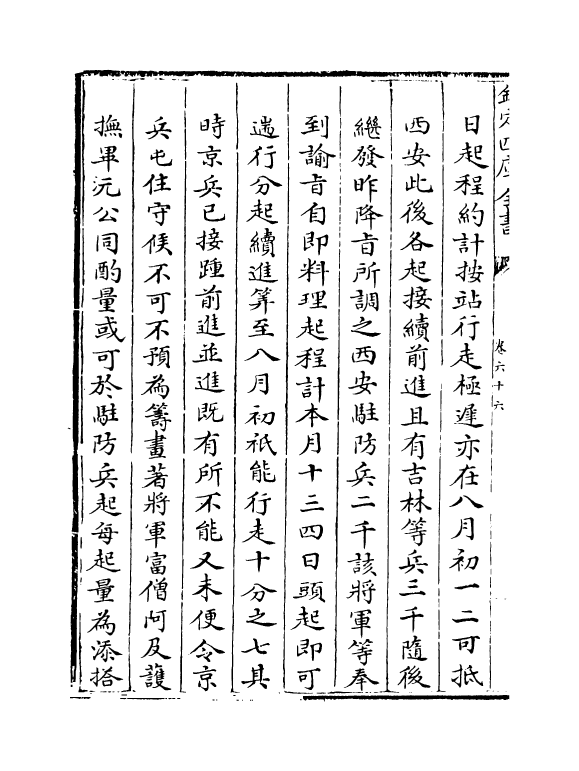 欽定四庫全書
卷六十六
日起程約計按站行走極遲亦在八月初一二可抵
西安此後各起接續前進且有吉林等兵三千隨後
繼發昨降旨所調之西安駐防兵二千該將軍等奉
到諭旨自即料理起程計本月十三四日頭起即可
遄行分起續進筭至八月初祇能行走十分之七其
時京兵已接踵前進並進既有所不能又未便令京
兵屯住守候不可不預為籌畫著將軍富僧阿及護
撫畢沅公同酌量或可於駐防兵起每起量為添搭